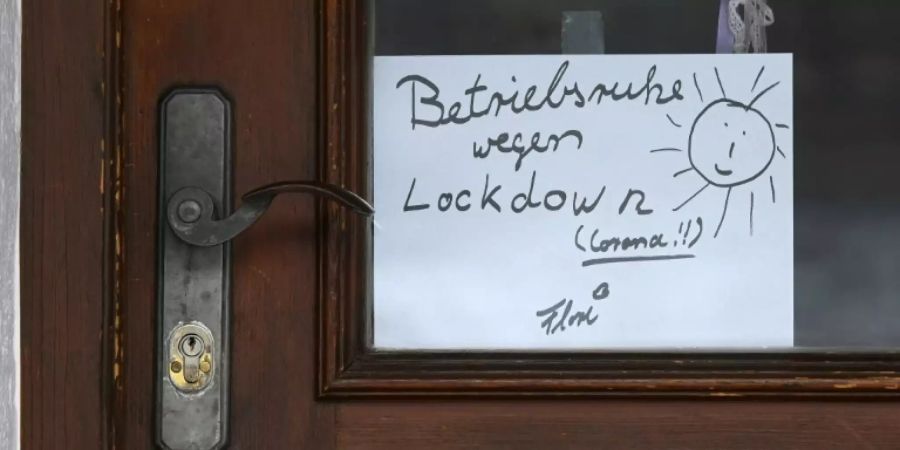 Betriebsruhe
wegen
Lockdown
(Corona!!)
Flori